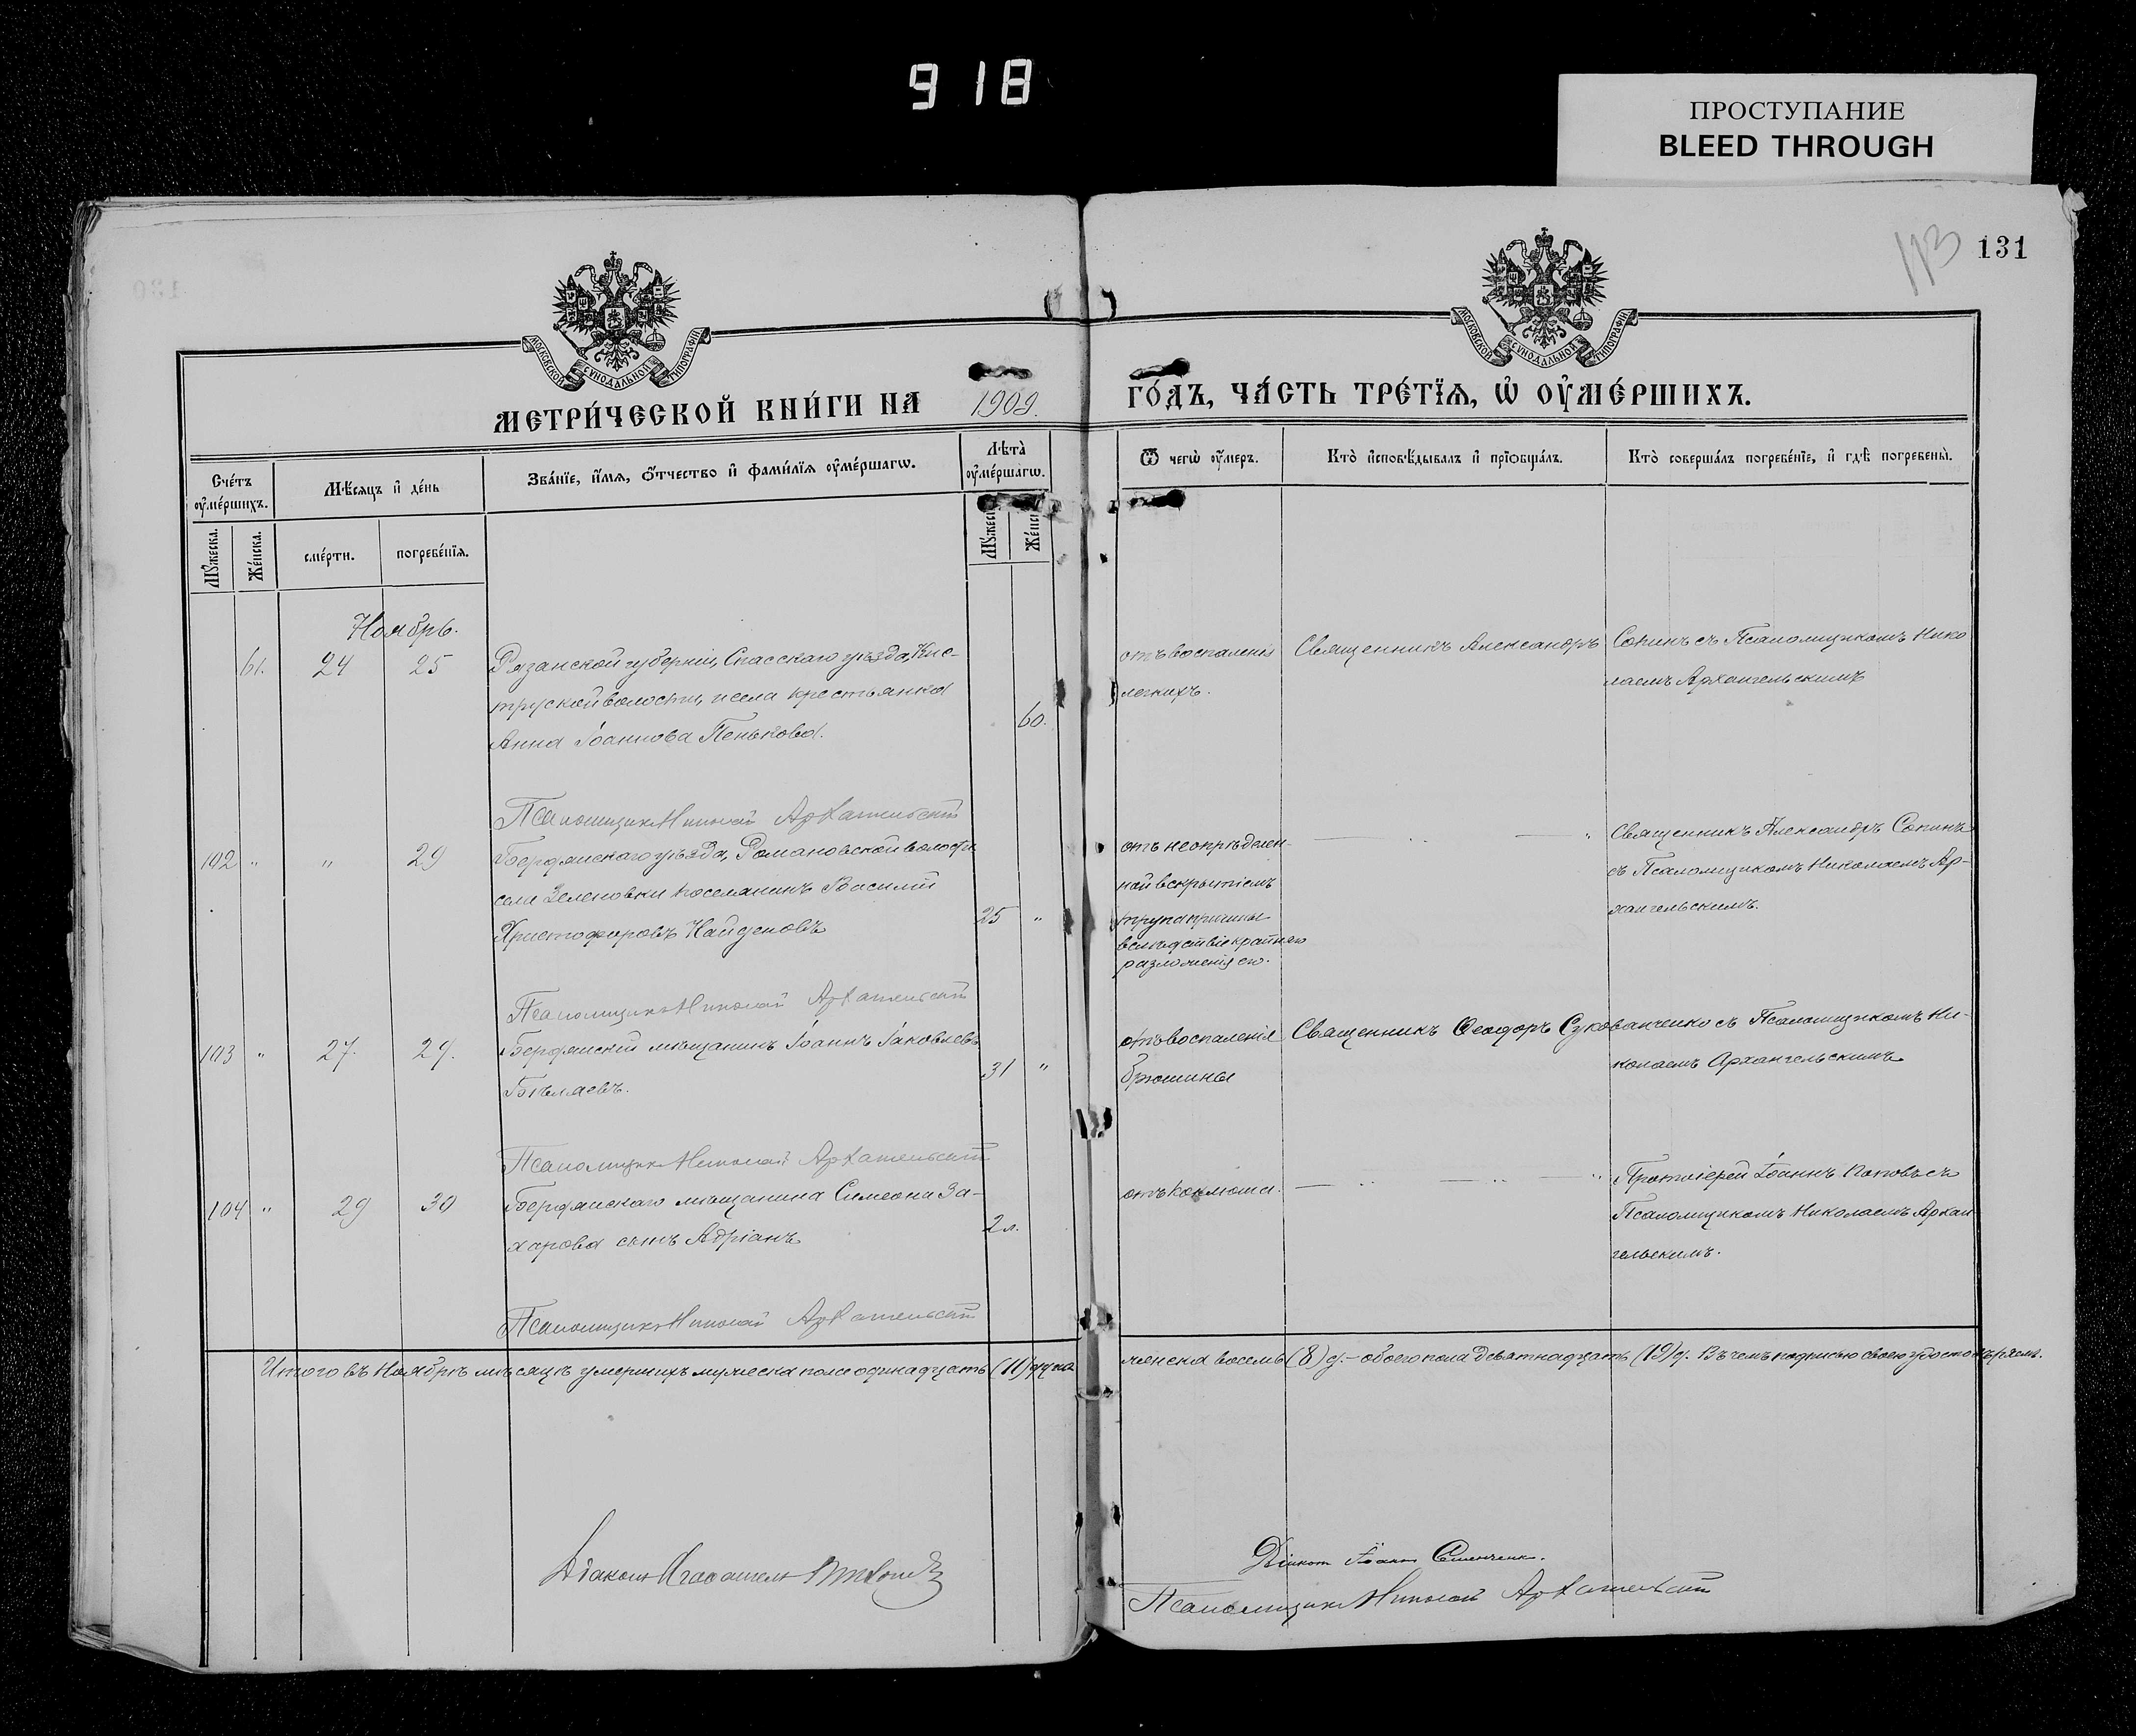 918
ПРОСТУПАНИЕ
BLEED THROUGH
113
131
МОСКОВСКОЙ СѴНОДАЛЬНОЙ ТИПОГРАФІИ
МОСКОВСКОЙ СѴНОДАЛЬНОЙ ТИПОГРАФІИ
МЕТРИ́ЧЕСКОЙ КНИ́ГИ НА 1909.
ГО́ДЪ, ЧА́СТЬ ТРЕ́ТЇѦ, Ѡ҆ ОУ҆МЕ́РШИХЪ.
Сче́тъ оу҆ме́ршихъ.
Мѣ́сяцъ и҆ де́нь
Зва́нїе, и҆́мѧ, ѻ҆́тчество и҆ фами́лїѧ оу҆ме́ршагѡ.
Лѣта̀ оу҆ме́ршагѡ.
Ѿ чегѡ̀ оу҆́меръ.
Кто̀ и҆сповѣ́дывалъ и҆ прїѡбща́лъ.
Кто̀ соверша́лъ погребе́нїе, и҆ гдѣ̀ погребены̀.
Мꙋ́жеска.
Же́нска.
сме́рти.
погребе́нїѧ.
Ноябрь.
61. 24 25 Рязанской губерніи, Спасскаго уѣзда, Кис-
трусской волости, и села крестьянка
Анна Іоаннова Пенькова. 60.
отъ воспаленія
легкихъ.
Священникъ Александръ Сопинъ съ Псаломщикомъ Нико
лаемъ Архангельскимъ
Псаломщикъ Николай Архангельскій
102 " " 29 Бердянскаго уѣзда, Романовской волости
села Зеленовки поселянинъ Василій
Христофоровъ Найденовъ 25 "
отъ неопредѣлен-
ной вскрытіемъ
трупа причины
вслѣдствіе крайняго
разложенія его.
Священникъ Александръ Сопинъ
съ Псаломщикомъ Николаемъ Ар-
хангельскимъ.
Псаломщикъ Николай Архангельскій
103 " 27. 29. Бердянскій мѣщанинъ Іоаннъ Іаковлевъ
Бѣляевъ. 31 "
отъ воспаленія
брюшины
Священникъ Ѳеодоръ Сукованченко съ Псаломщикомъ Ни-
колаемъ Архангельскимъ
Псаломщикъ Николай Архангельскій
104 " 29 30 Бердянскаго мѣщанина Симеона За-
харова сынъ Адріанъ 2 л.
отъ коклюша.
Протоіерей Іоаннъ Поповъ съ
Псаломщикомъ Николаемъ Архан
гельскимъ.
Псаломщикъ Николай Архангельскій
Итого въ Ноябрѣ мѣсяцѣ умершихъ мужеска пола одинадцать (11) душъ
женска восемь (8) д. – обоего пола девятнадцать (19) д. Въ чемъ подписью своею удостовѣряемъ.
Діаконъ
Діаконъ Іоаннъ
Псаломщикъ Николай Архангельскій